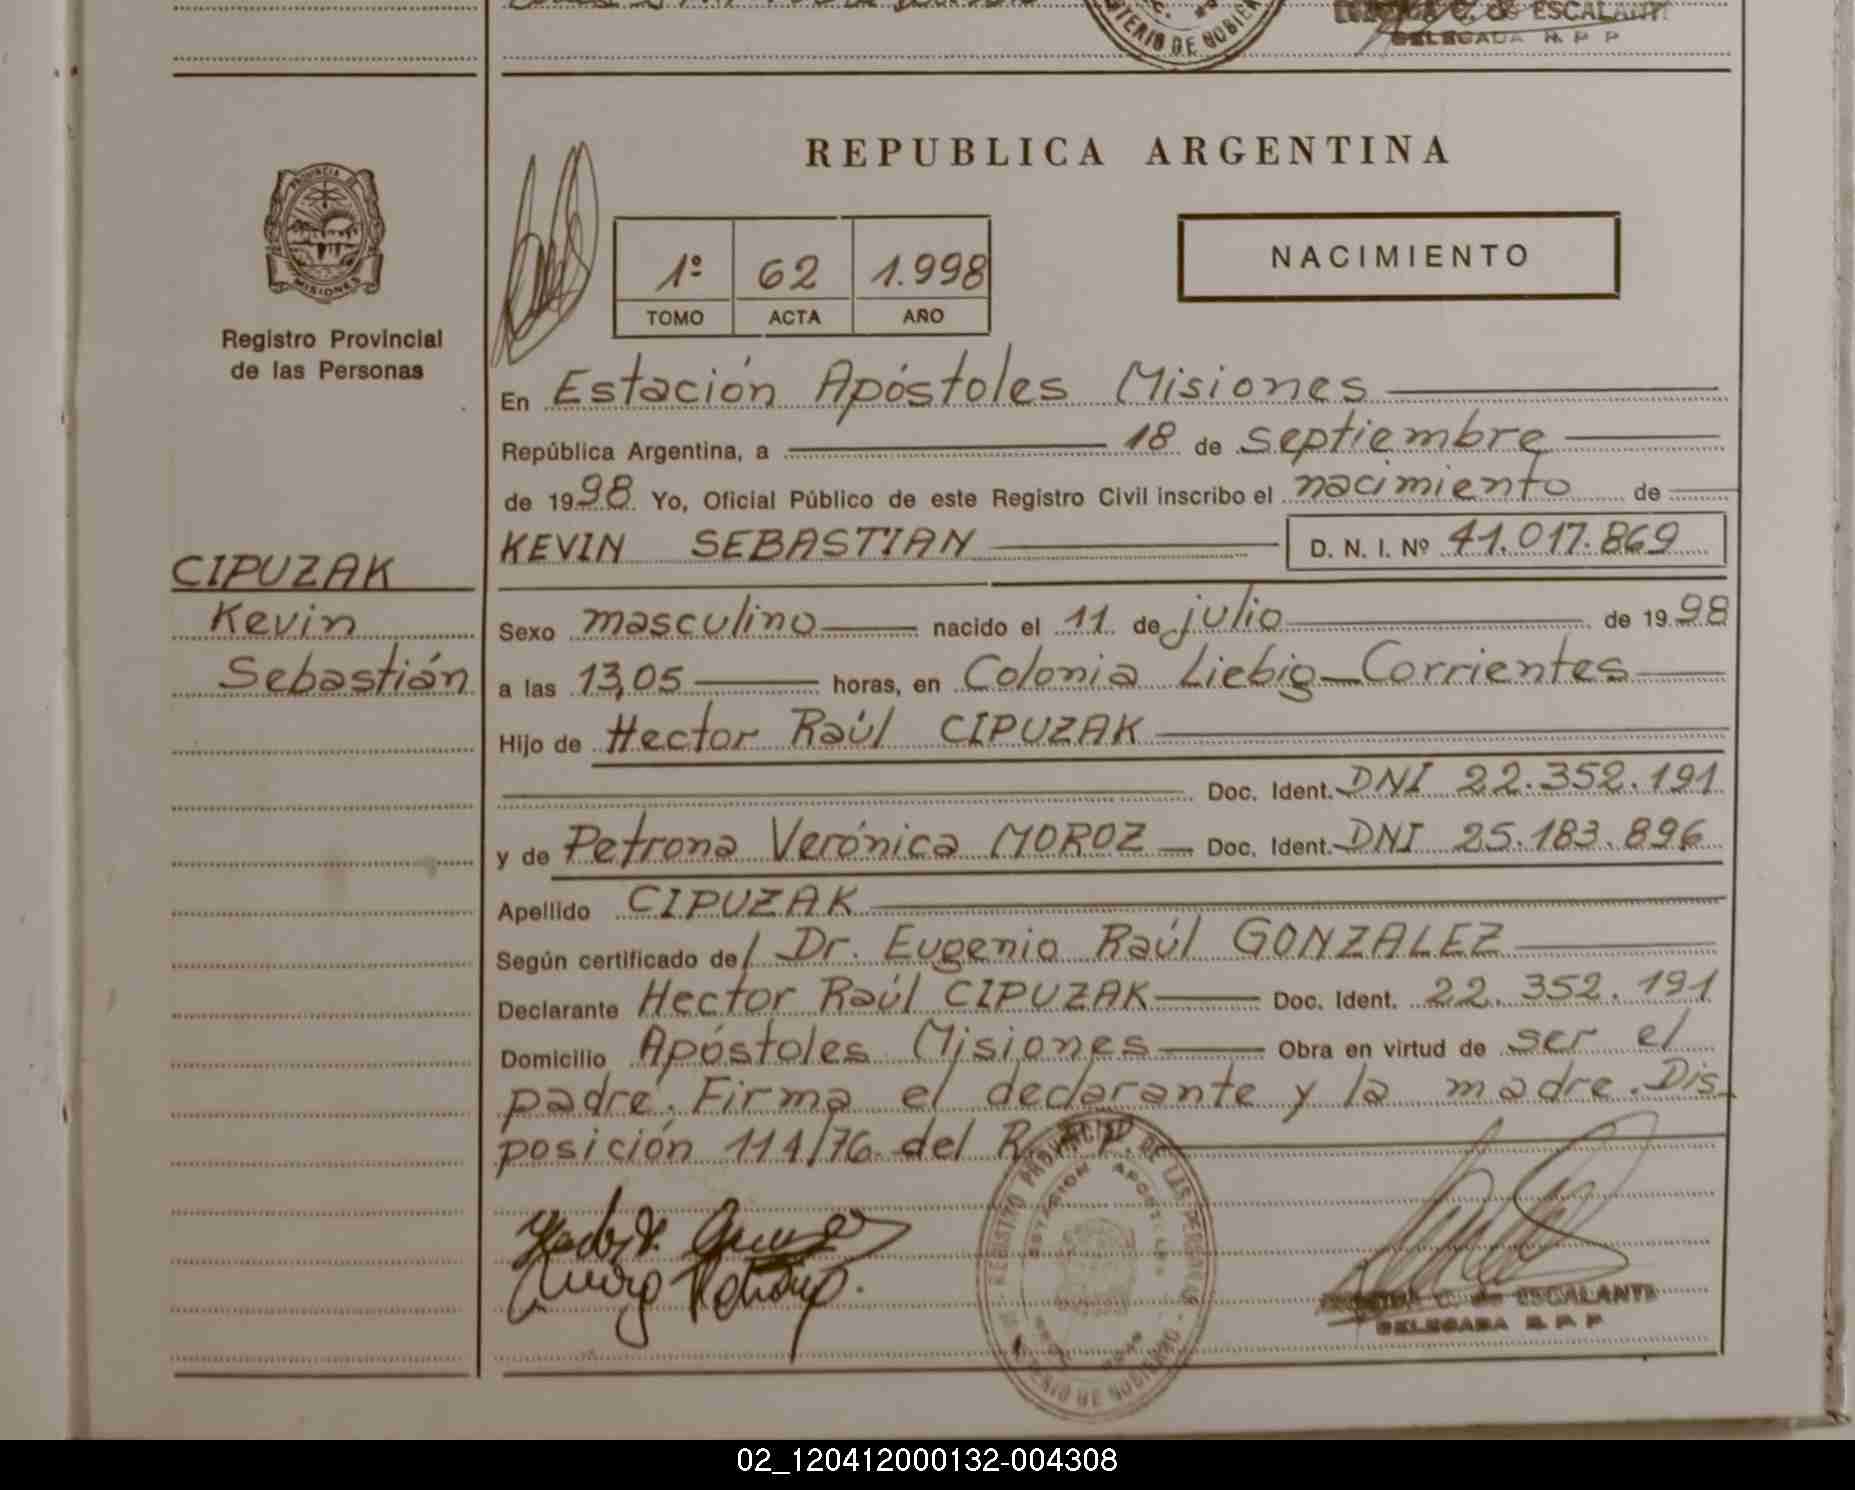 C. de ESCALANTE
DELEGADA R. P. P.
MINISTERIO DE GOBIERNO
REPUBLICA ARGENTINA
PROVINCIA DE
MISIONES
1º 62 1.998
TOMO ACTA AÑO
NACIMIENTO
Registro Provincial
de las Personas
En Estación Apóstoles Misiones
República Argentina, a 18 de septiembre
de 1998 Yo, Oficial Público de este Registro Civil inscribo el nacimiento de
KEVIN SEBASTIAN D. N. I. Nº 41.017.869
CIPUZAK
Kevin
Sebastián
Sexo masculino nacido el 11 de julio de 1998
a las 13,05 horas, en Colonia Liebig-Corrientes
Hijo de Hector Raúl CIPUZAK
Doc. Ident. DNI 22.352.191
y de Petrona Verónica MOROZ Doc. Ident. DNI 25.183.896
Apellido CIPUZAK
Según certificado de/ Dr. Eugenio Raúl GONZALEZ
Declarante Hector Raúl CIPUZAK Doc. Ident. 22.352.191
Domicilio Apóstoles Misiones Obra en virtud de ser el
padre. Firma el declarante y la madre. Dis-
posición 114/76 del R.P.P.
REGISTRO PROVINCIAL DE LAS PERSONAS
ESTACION APOSTOLES
MINISTERIO DE GOBIERNO
C. de ESCALANTE
DELEGADA R. P. P.
02_120412000132-004308